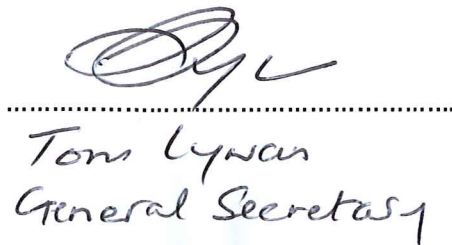 Tom Lynan
General Secretary